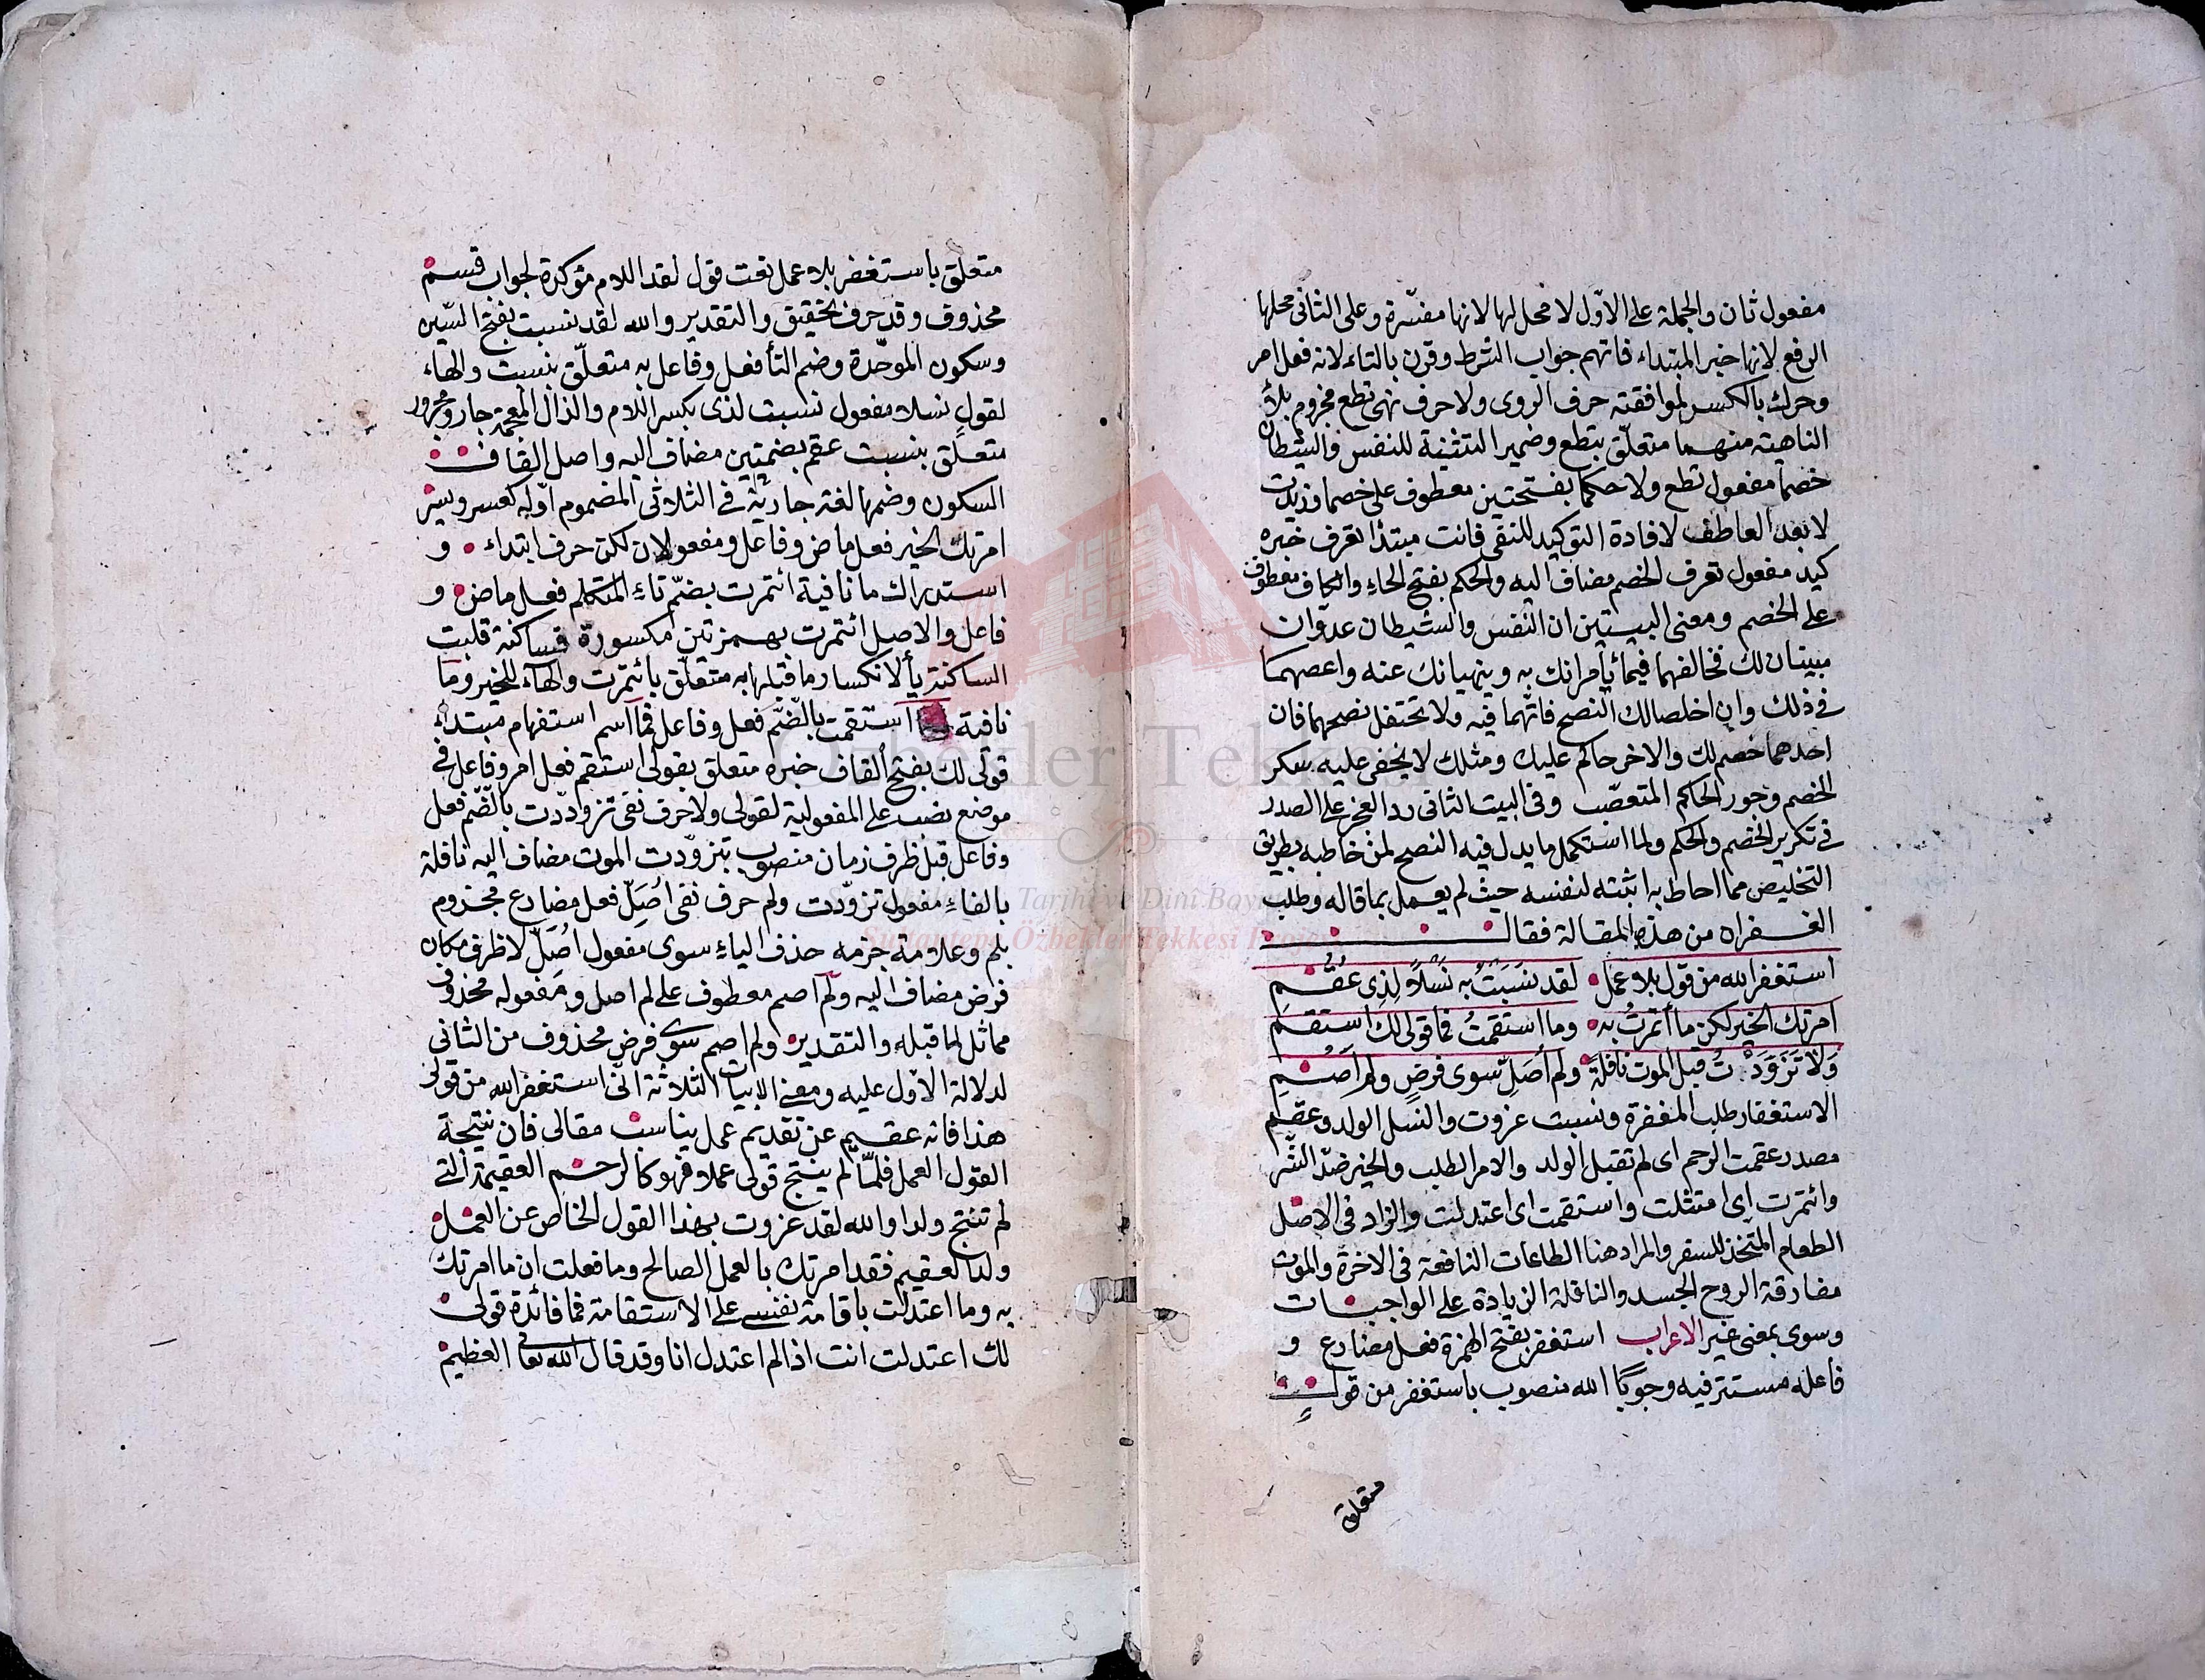 مفعول ثان والجملة على الاوّل لا محل لها لانها مفسّرة وعلى الثانى محلها
الرفع لانها خبر المبتداء فاتهم جواب الشرط وقرن بالتاء لانه فعل امر
وحرك بالكسر لموافقته حرف الروى ولا حرف نهى تطع مجزوم بلا
الناهية منهما متعلّق بتطع وضمير التثنية للنفس والشيطان
خصما مفعول تطع ولا حكما بفتحتين معطوف على خصما وزيدت
لا بعد العاطف لافادة التوكيد للنفى فانت مبتدأ تعرف خبره
كيد مفعول تعرف الخصم مضاف اليه والحكم بفتح الحاء والكاف معطوف
على الخصم ومعنى البيتين ان النفس والشيطان عدوّان
مبينان لك فخالفهما فيما يأمرانك به وينهيانك عنه واعصهما
فى ذلك وان اخلصا لك النصح فاتهما فيه ولا تحتفل بنصحهما فان
احدهما خصم لك والاخر حاكم عليك ومثلك لا يخفى عليه سكر
الخصم وجور الحاكم المتعصّب وفى البيت الثانى رد العجز على الصدر
فى تكرير الخصم والحكم ولما استكمل ما يدل فيه النصح لمن خاطبه بطريق
التخليص مما احاط به اثبته لنفسه حيث لم يعمل بما قاله وطلب
الغفران من هذه المقالة فقال
استغفر الله من قول بلا عمل لقد نسبت به نسلا لذى عقم
امرتك الخير لكن ما أتمرت به وما استقمت فما قولى لك استقم
ولا تزوّدت قبل الموت نافلة ولم اصل سوى فرض ولم اصم
الاستغفار طلب المغفرة ونسبت عزوت والنسل الولد وعقم
مصدر عقمت الرحم اى لم تقبل الولد والامر الطلب والخير ضدّ الشر
وائتمرت اى امتثلت واستقمت اى اعتدلت والزاد فى الاصل
الطعام المتّخذ للسفر والمراد هنا الطاعات النافعة فى الاخرة والموت
مفارقة الروح الجسد والنافلة الزيادة على الواجبات
وسوى بمعنى غير الاعراب استغفر بفتح الهمزة فعل مضارع و
فاعله مستتر فيه وجوبًا الله منصوب باستغفر من قول
متعلق
متعلّق باستغفر بلا عمل نعت قول لقد اللام مؤكدة لجواب قسم
محذوف وقد حرف تحقيق والتقدير والله لقد نسبت بفتح السّين
وسكون الموحّدة وضم التأ فعل وفاعل به متعلّق بنسبت والهاء
لقول نسلا مفعول نسبت لذى بكسر اللام والذال المعجمة جار ومجرور
متعلّق بنسبت عقم بضمتين مضاف اليه واصل القاف
السكون وضمها لغة جارية فى الثلاثى المضموم اوّله كعسر ويسر
امرتك الخير فعل ماض وفاعل ومفعولان لكن حرف ابتداء و
استدراك ما نافية ائتمرت بضمّ تاء المتكلم فعل ماض و
فاعل والاصل ائتمرت بهمزتين مكسورة فساكنة قلبت
الساكنة يألانكسار ما قبلها به متعلّق بائتمرت والهاء للخير وما
نافية استقمت بالضّم فعل وفاعل فما اسم استفهام مبتداء
قولى لك بفتح القاف خبره متعلق بقولى استقم فعل امر وفاعل فى
موضع نصب على المفعولية لقولى ولا حرف نفى تزوّدت بالضّم فعل
وفاعل قبل ظرف زمان منصوب بتزوّدت الموت مضاف اليه نافلة
بالفاء مفعول تزوّدت ولم حرف نفى اصلّ فعل مضارع مجزوم
بلم وعلامة جزمه حذف الياء سوى مفعول اصلّ لا ظرف مكان
فرض مضاف اليه ولم اصم معطوف على لم اصل ومفعوله محذوف
مماثل لما قبله والتقدير ولم اصم سوى فرض محذوف من الثانى
لدلالة الاوّل عليه ومعنى الابيات الثلاثة انّى استغفر الله من قولى
هذا فانه عقيم عن تقديم عمل يناسب مقالى فان نتيجة
القول العمل فلمّا لم ينتج قولى عملا فهو كالرحم العقيمة التى
لم تنتج ولدا والله لقد عزوت بهذا القول الخاص عن العمل
ولدا لعقيم فقد امرتك بالعمل الصالح وما فعلت ان ما امرتك
به وما اعتدلت باقامة نفسى على الاستقامة فما فائدة قولى
لك اعتدلت انت اذا لم اعتدل انا وقد قال الله تعالى العظيم
Özbekler Tekkesi
Tarihî ve Dinî
Sultantepe Özbekler Tekkesi